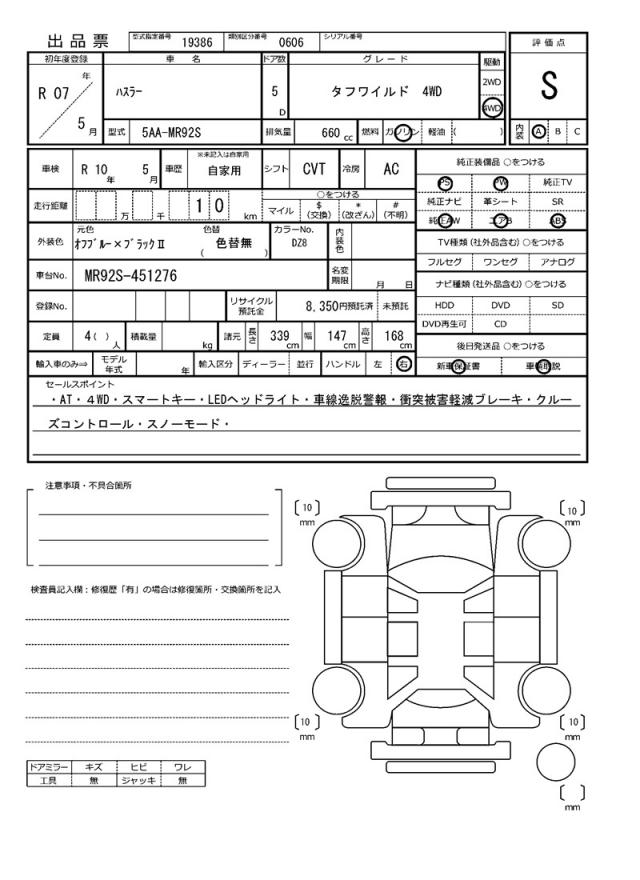 出品票 型式指定番号 19386 類別区分番号 0606 シリアル番号
評価点
S
初年度登録 車名 ドア数 グレード 駆動
R 07 年 5 月 ハスラー 5 D タフワイルド 4WD 2WD 4WD
型式 5AA-MR92S 排気量 660 cc 燃料 ガソリン 軽油 ( ) 内装 A B C
車検 R 10 年 5 月 車歴 ※未記入は自家用 自家用 シフト CVT 冷房 AC
走行距離 万 千 1 0 km ○をつける
マイル $ (交換) * (改ざん) # (不明)
外装色 元色 オフブルー×ブラックⅡ 色替 色替無 ( ) カラーNo. DZ8 内装色
車台No. MR92S-451276 名変期限 月 日
登録No. リサイクル預託金 8,350円預託済 未預託
定員 4( ) 人 積載量 kg 諸元 長さ 339 cm 幅 147 cm 高さ 168 cm
輸入車のみ⇒ モデル年式 年 輸入区分 ディーラー 並行 ハンドル 左 右
純正装備品 ○をつける
PS PW 純正TV
純正ナビ 革シート SR
純正AW エアB ABS
TV種類(社外品含む)○をつける
フルセグ ワンセグ アナログ
ナビ種類(社外品含む)○をつける
HDD DVD SD
DVD再生可 CD
後日発送品 ○をつける
新車保証書 車輌取説
セールスポイント
・AT・4WD・スマートキー・LEDヘッドライト・車線逸脱警報・衝突被害軽減ブレーキ・クルー
ズコントロール・スノーモード・
注意事項・不具合箇所
検査員記入欄:修復歴「有」の場合は修復箇所・交換箇所を記入
ドアミラー キズ ヒビ ワレ
工具 無 ジャッキ 無
〔10〕 mm
〔10〕 mm
〔10〕 mm
〔10〕 mm
〔 〕 mm